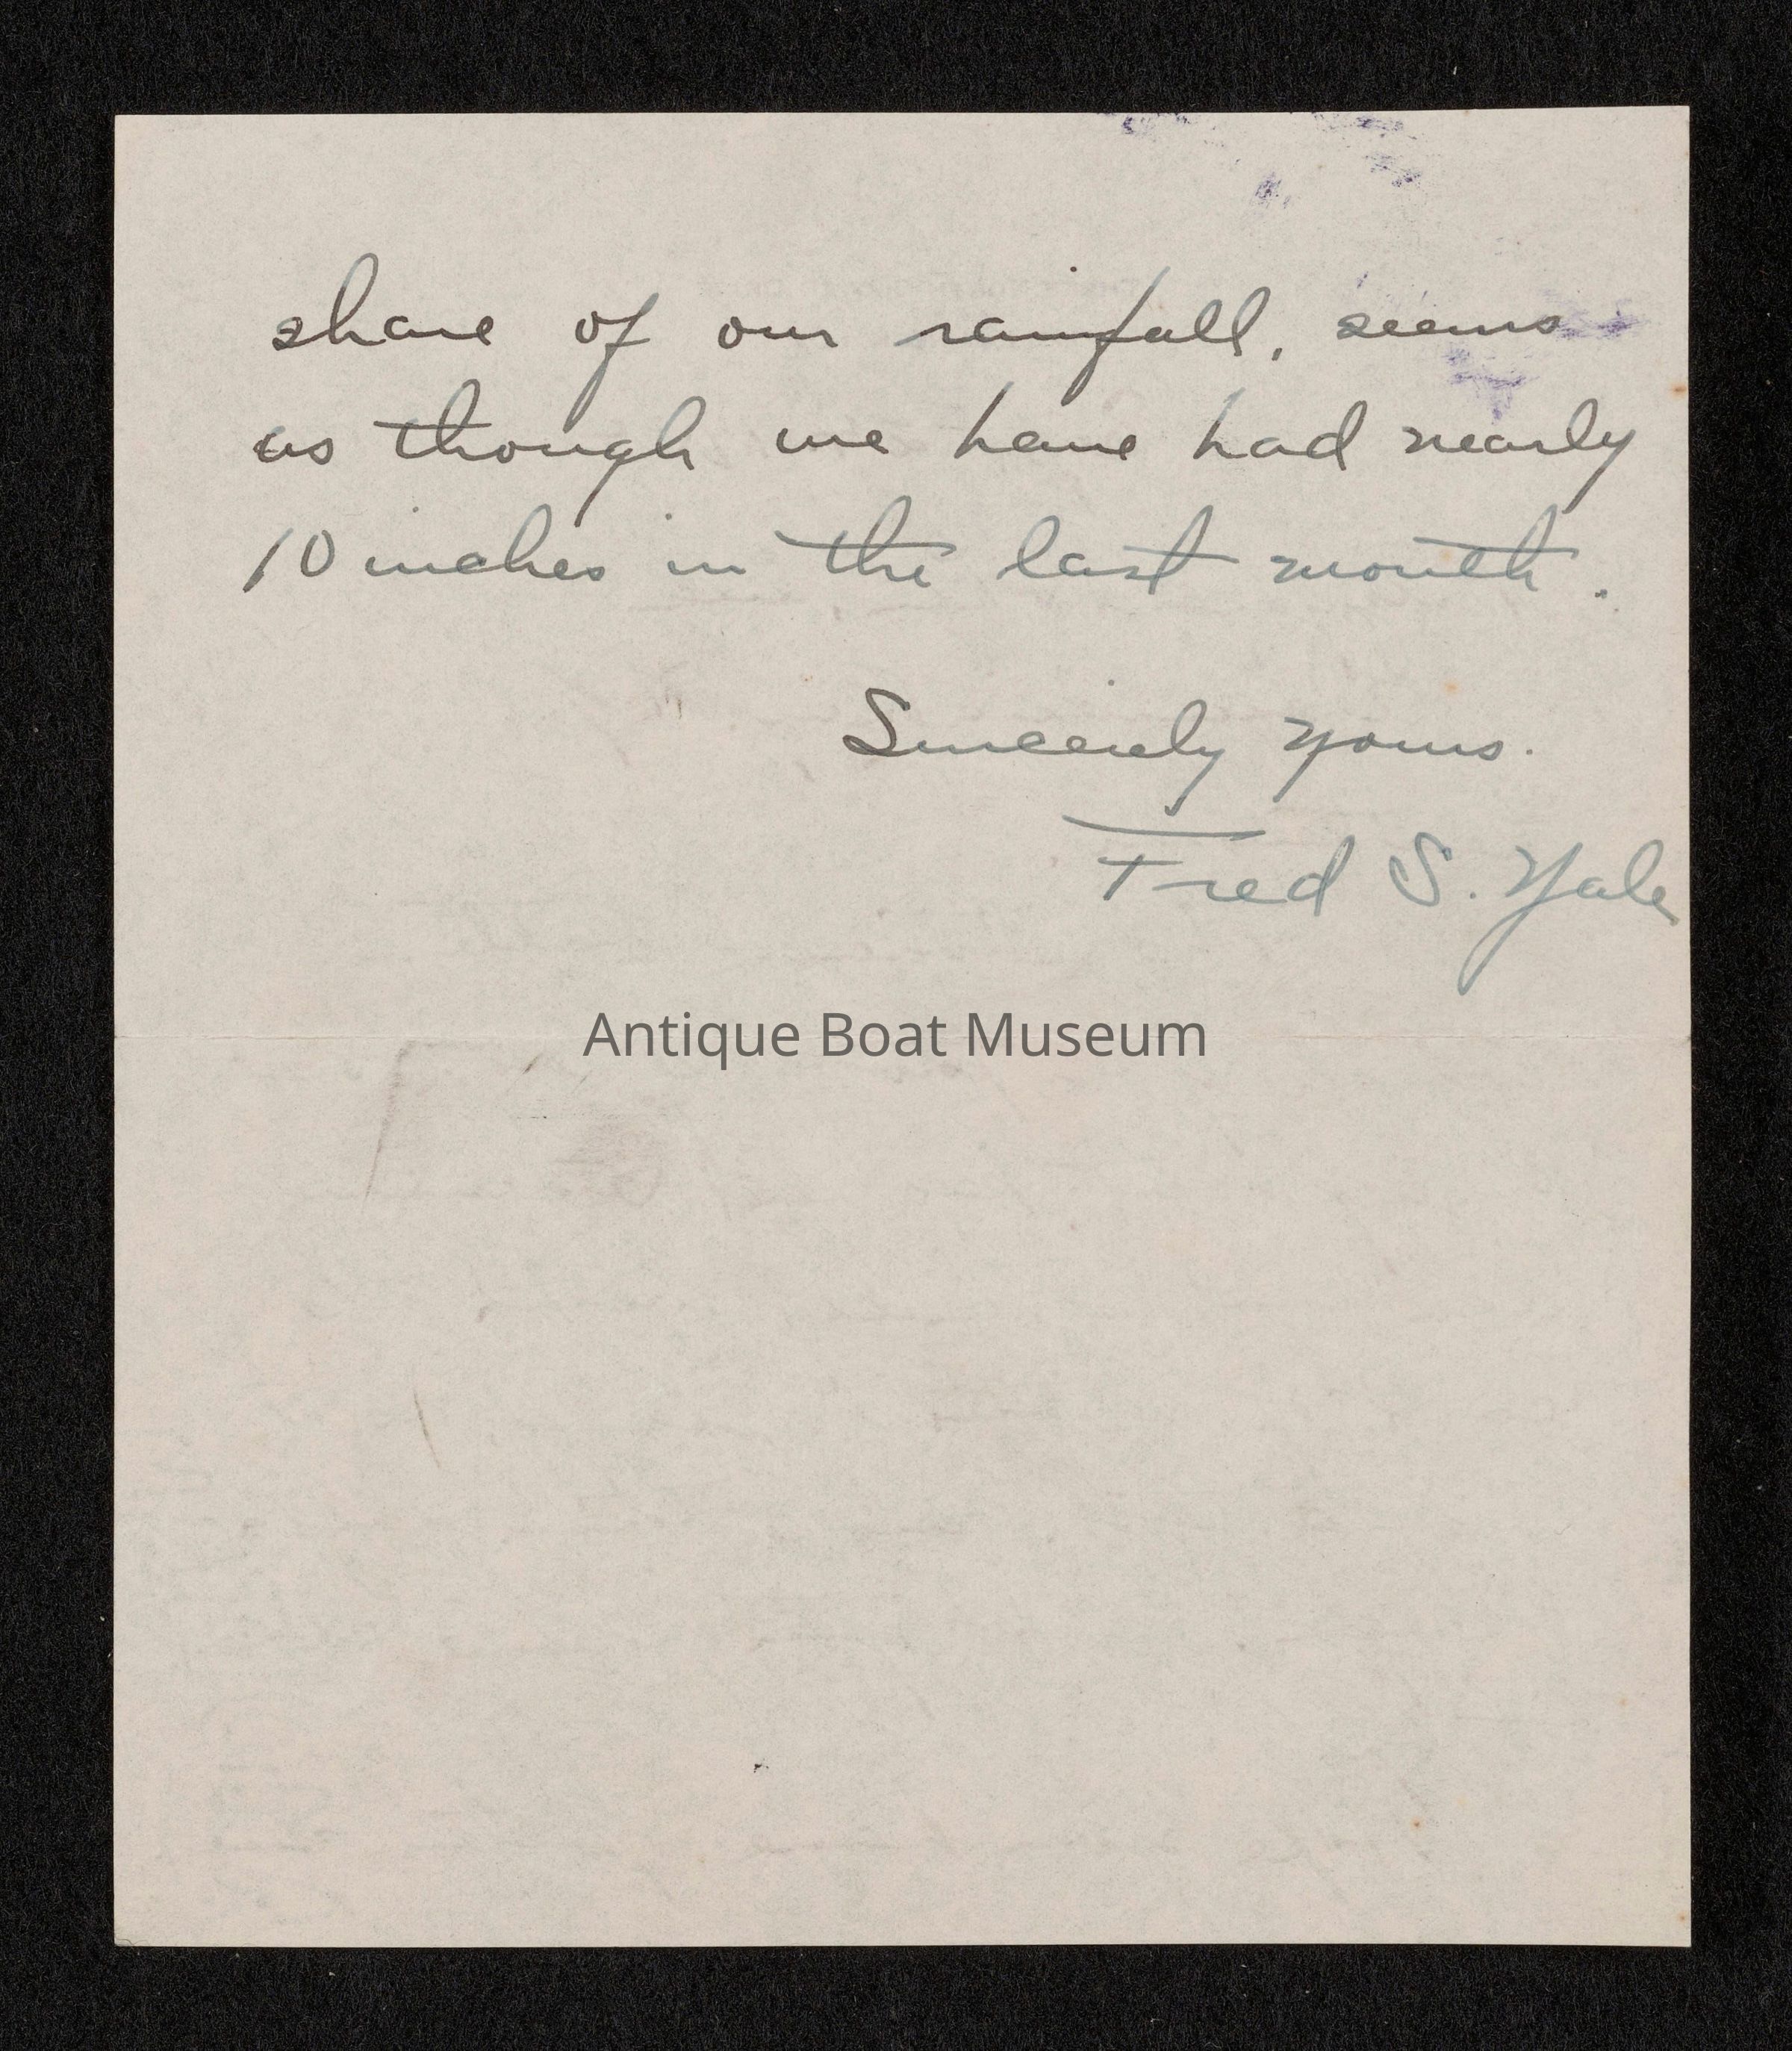 share of our rainfall, seems
as though we have had nearly
10 inches in the last month.
Sincerely yours.
Fred S. Yale
Antique Boat Museum